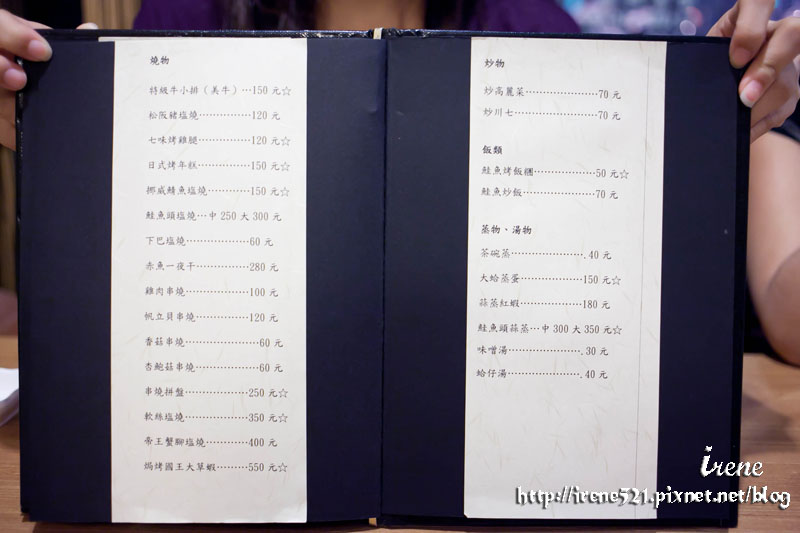 燒物
特級牛小排（美牛）…150 元☆
松阪豬塩燒…………120 元
七味烤雞腿…………120 元☆
日式烤年糕…………150 元☆
挪威鯖魚塩燒………150 元☆
鮭魚頭塩燒…中 250 大 300 元
下巴塩燒………………60 元
赤魚一夜干…………280 元
雞肉串燒……………100 元
帆立貝串燒…………120 元
香菇串燒………………60 元
杏鮑菇串燒……………60 元
串燒拼盤……………250 元☆
軟絲塩燒……………350 元☆
帝王蟹腳塩燒………400 元
焗烤國王大草蝦………550 元☆
炒物
炒高麗菜………………70 元
炒川七…………………70 元
飯類
鮭魚烤飯糰……………50 元☆
鮭魚炒飯………………70 元
蒸物、湯物
茶碗蒸…………………40 元
大蛤蒸蛋……………150 元☆
蒜蒸紅蝦……………180 元
鮭魚頭蒜蒸…中 300 大 350 元☆
味噌湯…………………30 元
蛤仔湯…………………40 元
irene
http://irene521.pixnet.net/blog